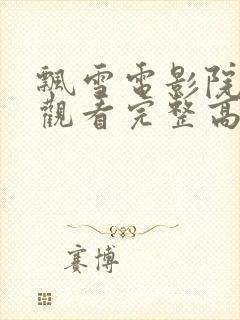 飄雪電影院
觀看完整高
賽博